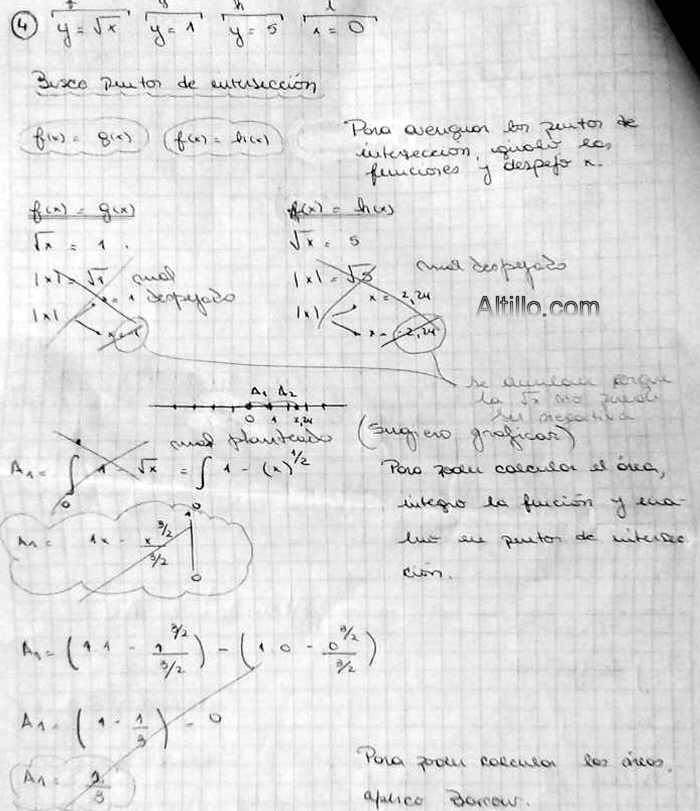 ④ y = √x   y = 1   y = 5   x = 0
f g h i
Busco puntos de intersección
f(x) = g(x)   f(x) = h(x)
Para averiguar los puntos de
intersección, igualo las
funciones y despejo x.
f(x) = g(x)   f(x) = h(x)
√x = 1   √x = 5
|x| = √1   mal   |x| = √5   mal despejado
x = 1   despejado   x = 2,24
|x|   |x|
x = -1   x = -2,24
Altillo.com
Se anulan porque
la √x no puede
ser negativa
A1 A2
0 1 2,24
mal planteado   (Sugiero graficar)
A1 = ∫ 1 - √x = ∫ 1 - (x)^1/2
0 0
Para poder calcular el área,
integro la función y eva-
luo en puntos de intersec
ción.
A1 = 1x - x^3/2 / 3/2 |
1
0
A1 = (1.1 - 1^3/2 / 3/2) - (1.0 - 0^3/2 / 3/2)
A1 = (1 - 1/3) - 0
A1 = 2/3
Para poder calcular las áreas,
aplico Barrow.